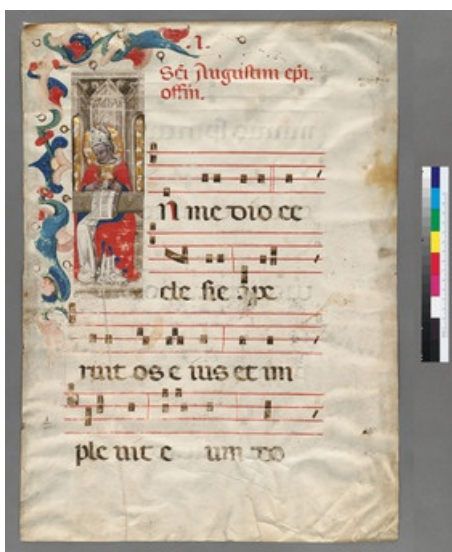 .I.
Sc̄i Augustini ep̄i.
offm̄.
n me dio ec
cle sie a pe
ruit os e ius et im
ple uit e um do